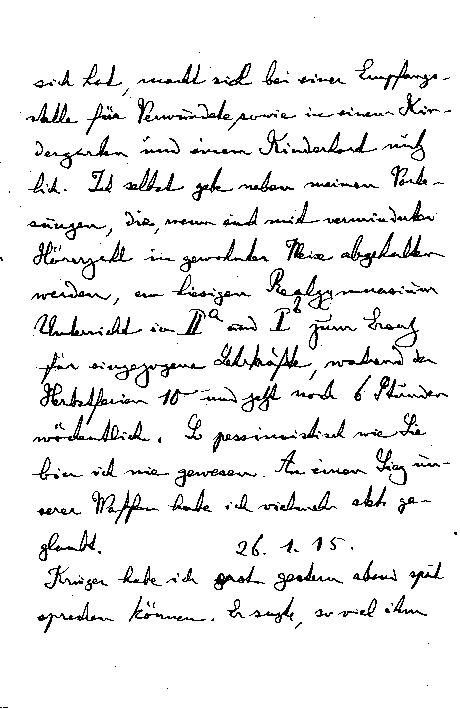 sich hat, macht sich bei einer Empfangs-
stelle für Verwundete, sowie in einem Kin-
dergarten und einem Kinderhort nütz
lich. Ich selbst gebe neben meinen Vorle-
sungen, die, wenn auch mit verminderter
Hörerzahl in gewohnter Weise abgehalten
werden, am hiesigen Realgymnasium
Unterricht in IIa und Ib zum Ersatz
für eingezogene Lehrkräfte, während der
Herbstferien 10 und jetzt noch 6 Stunden
wöchentlich. So pessimistisch wie Sie
bin ich nie gewesen. An einen Sieg un-
serer Waffen habe ich vielmehr stets ge-
glaubt. 26. 1. 15.
Krüger habe ich erst gestern abend spät
sprechen können. Er sagte, so viel ihm